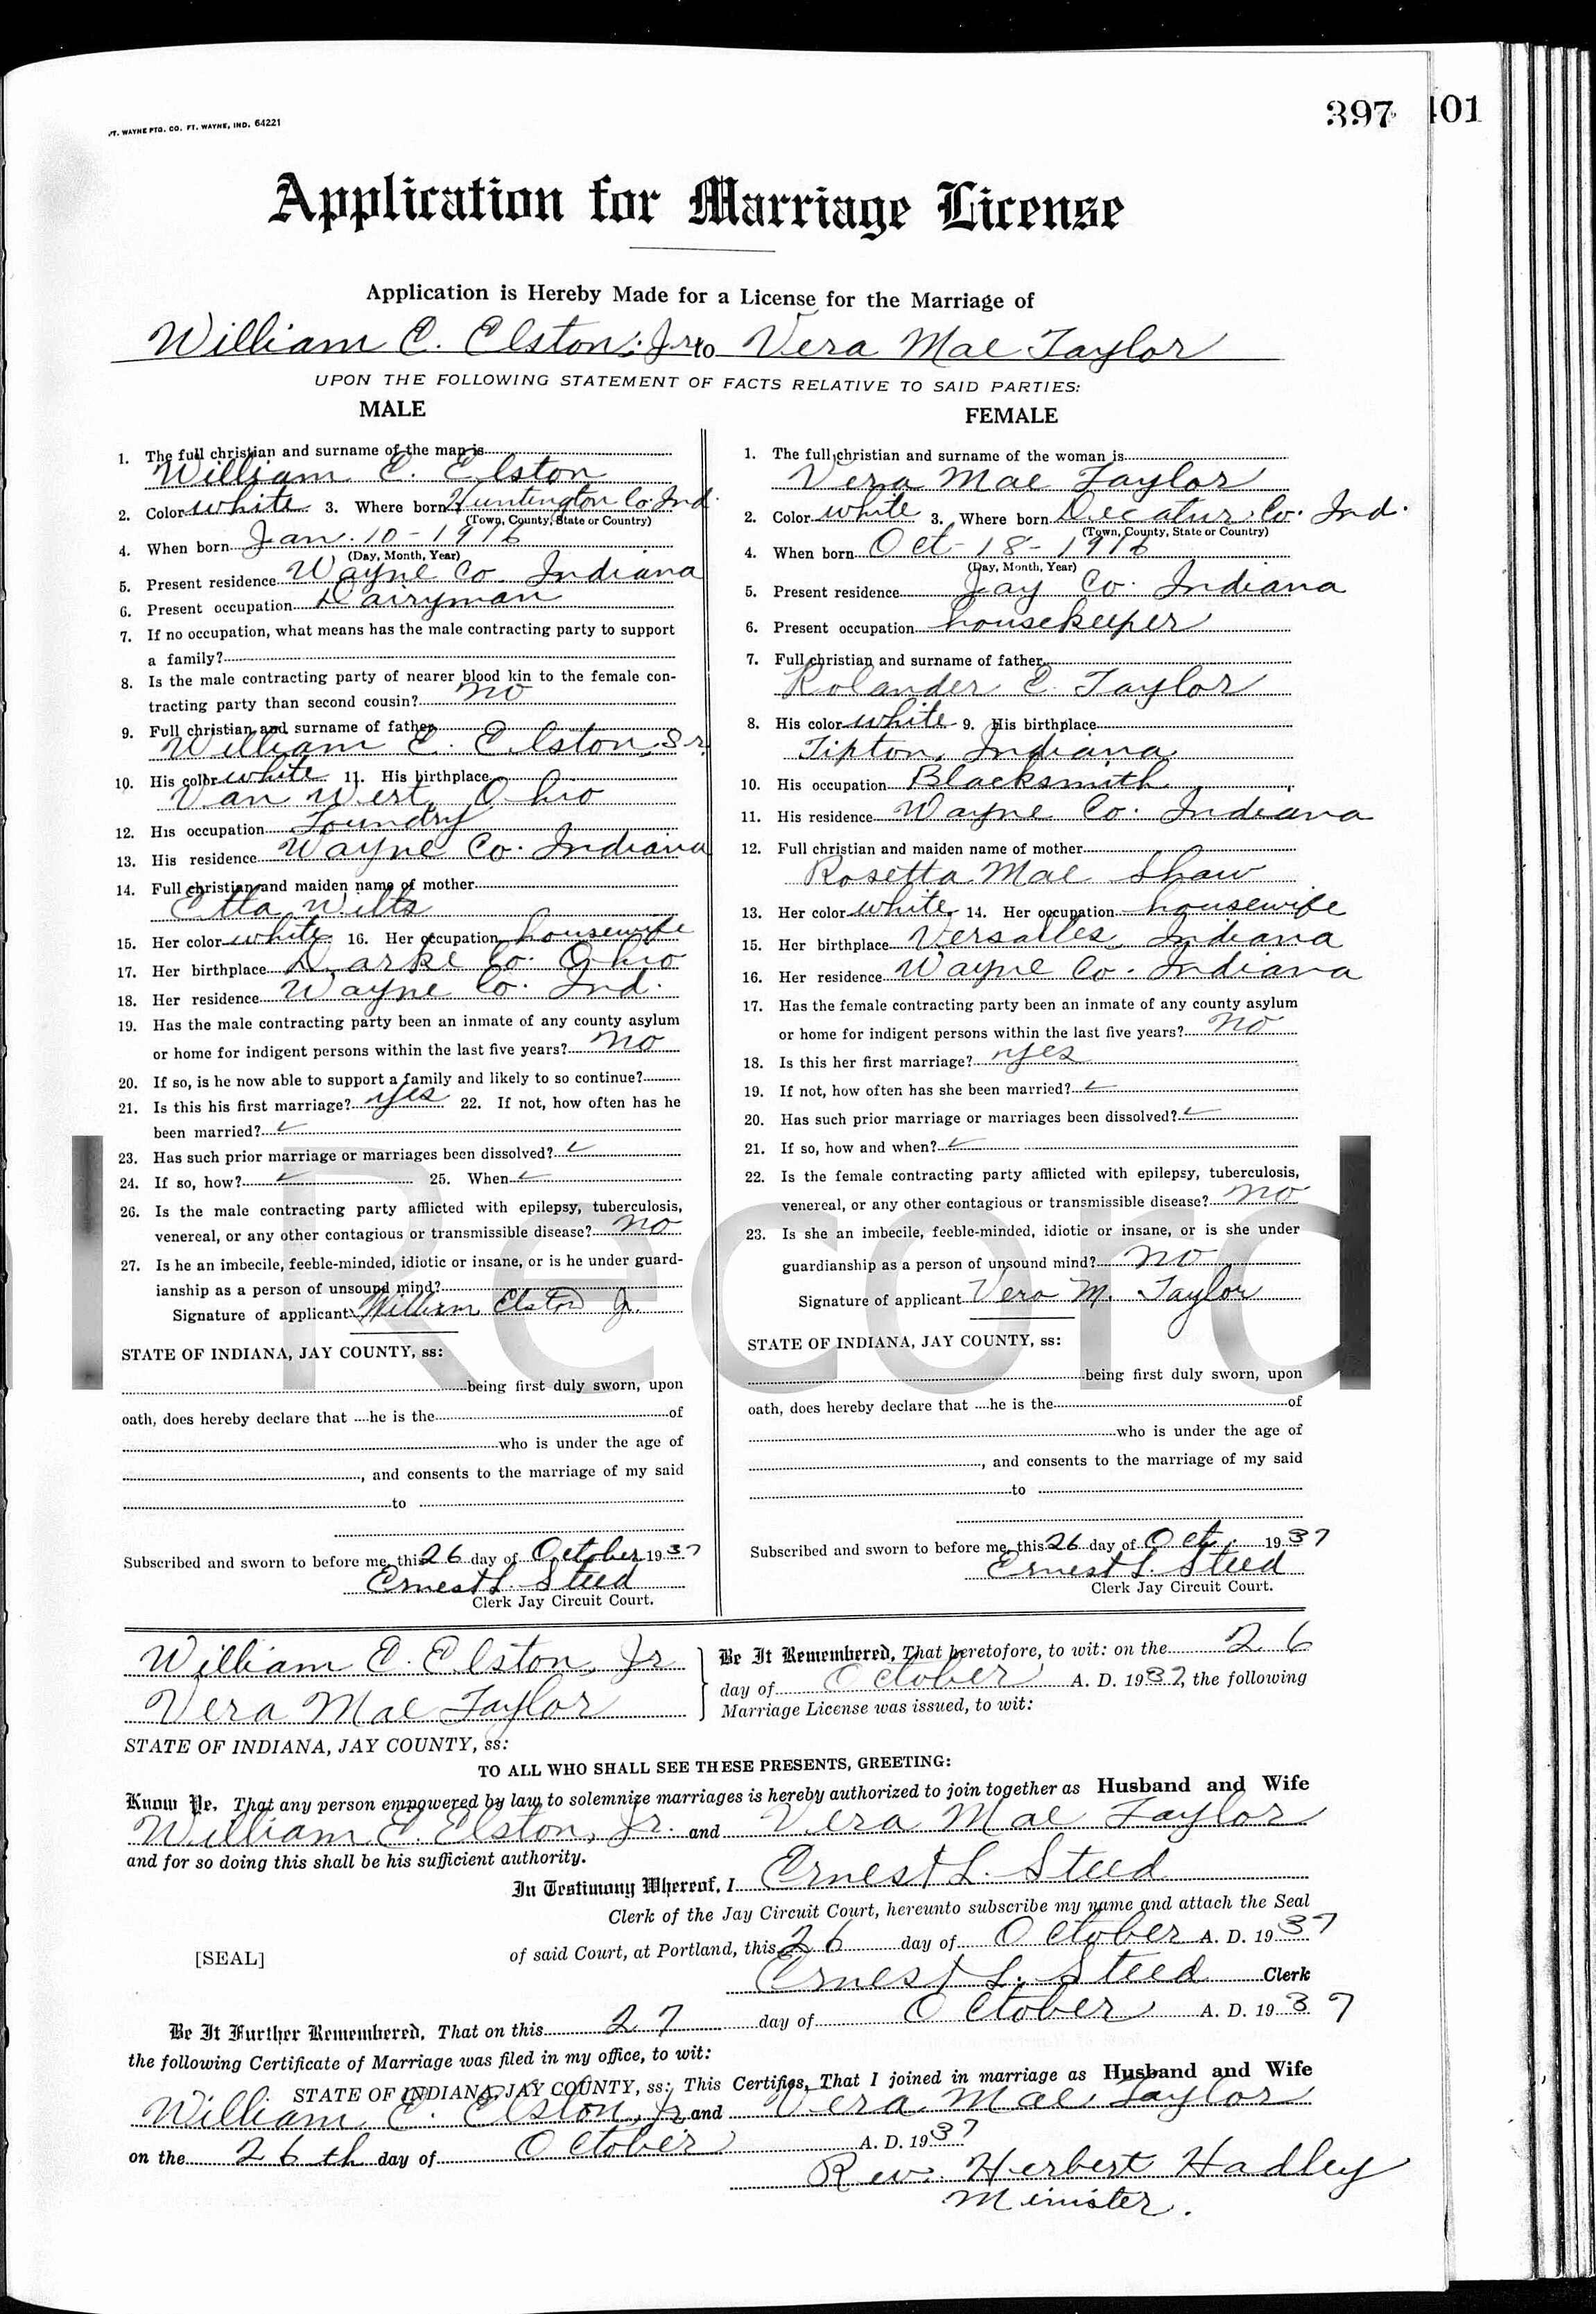 FT. WAYNE PTG. CO. FT. WAYNE, IND. 64221
397 401
Application for Marriage License
Application is Hereby Made for a License for the Marriage of
William E. Elston, Jr. to Vera Mae Taylor
UPON THE FOLLOWING STATEMENT OF FACTS RELATIVE TO SAID PARTIES:
MALE
1. The full christian and surname of the man is
William E. Elston
2. Color white 3. Where born Huntington Co. Ind.
(Town, County, State or Country)
4. When born Jan. 10 - 1916
(Day, Month, Year)
5. Present residence Wayne Co. Indiana
6. Present occupation Dairyman
7. If no occupation, what means has the male contracting party to support
a family?
8. Is the male contracting party of nearer blood kin to the female con-
tracting party than second cousin? no
9. Full christian and surname of father
William E. Elston, Sr.
10. His color white 11. His birthplace
Van Wert, Ohio
12. His occupation Foundry
13. His residence Wayne Co. Indiana
14. Full christian and maiden name of mother
Etta Wilts
15. Her color white 16. Her occupation housewife
17. Her birthplace Darke Co. Ohio
18. Her residence Wayne Co. Ind.
19. Has the male contracting party been an inmate of any county asylum
or home for indigent persons within the last five years? no
20. If so, is he now able to support a family and likely to so continue?
21. Is this his first marriage? yes 22. If not, how often has he
been married? ✓
23. Has such prior marriage or marriages been dissolved? ✓
24. If so, how? ✓ 25. When ✓
26. Is the male contracting party afflicted with epilepsy, tuberculosis,
venereal, or any other contagious or transmissible disease? no
27. Is he an imbecile, feeble-minded, idiotic or insane, or is he under guard-
ianship as a person of unsound mind?
Signature of applicant William Elston Jr.
STATE OF INDIANA, JAY COUNTY, ss:
being first duly sworn, upon
oath, does hereby declare that ....he is the of
who is under the age of
, and consents to the marriage of my said
to
Subscribed and sworn to before me, this 26 day of October 1937
Ernest L. Steed
Clerk Jay Circuit Court.
FEMALE
1. The full christian and surname of the woman is
Vera Mae Taylor
2. Color white 3. Where born Decatur Co. Ind.
(Town, County, State or Country)
4. When born Oct - 18 - 1916
(Day, Month, Year)
5. Present residence Jay Co. Indiana
6. Present occupation housekeeper
7. Full christian and surname of father
Rolander E. Taylor
8. His color white 9. His birthplace
Tipton, Indiana
10. His occupation Blacksmith
11. His residence Wayne Co. Indiana
12. Full christian and maiden name of mother
Rosetta Mae Shaw
13. Her color white 14. Her occupation housewife
15. Her birthplace Versalles, Indiana
16. Her residence Wayne Co. Indiana
17. Has the female contracting party been an inmate of any county asylum
or home for indigent persons within the last five years? no
18. Is this her first marriage? yes
19. If not, how often has she been married? ✓
20. Has such prior marriage or marriages been dissolved? ✓
21. If so, how and when? ✓
22. Is the female contracting party afflicted with epilepsy, tuberculosis,
venereal, or any other contagious or transmissible disease? no
23. Is she an imbecile, feeble-minded, idiotic or insane, or is she under
guardianship as a person of unsound mind? no
Signature of applicant Vera M. Taylor
STATE OF INDIANA, JAY COUNTY, ss:
being first duly sworn, upon
oath, does hereby declare that ....he is the of
who is under the age of
, and consents to the marriage of my said
to
Subscribed and sworn to before me, this 26 day of Oct. 1937
Ernest L. Steed
Clerk Jay Circuit Court.
Record
William E. Elston, Jr
Vera Mae Taylor
Be It Remembered, That heretofore, to wit: on the 26
day of October A. D. 1937, the following
Marriage License was issued, to wit:
STATE OF INDIANA, JAY COUNTY, ss:
TO ALL WHO SHALL SEE THESE PRESENTS, GREETING:
Know Ye, That any person empowered by law to solemnize marriages is hereby authorized to join together as Husband and Wife
William E. Elston, Jr. and Vera Mae Taylor
and for so doing this shall be his sufficient authority.
In Testimony Whereof, I Ernest L. Steed
Clerk of the Jay Circuit Court, hereunto subscribe my name and attach the Seal
[SEAL] of said Court, at Portland, this 26 day of October A. D. 1937
Ernest L. Steed Clerk
Be It Further Remembered, That on this 27 day of October A. D. 1937
the following Certificate of Marriage was filed in my office, to wit:
STATE OF INDIANA, JAY COUNTY, ss: This Certifies, That I joined in marriage as Husband and Wife
William E. Elston, Jr. and Vera Mae Taylor
on the 26th day of October A. D. 1937
Rev. Herbert Hadley
Minister.